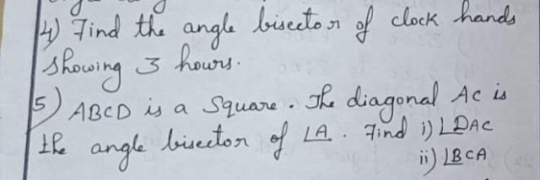 4) Find the angle bisector of clock hands
showing 3 hours.
5) ABCD is a Square. The diagonal AC is
the angle bisector of ∠A. Find i) ∠DAC
ii) ∠BCA